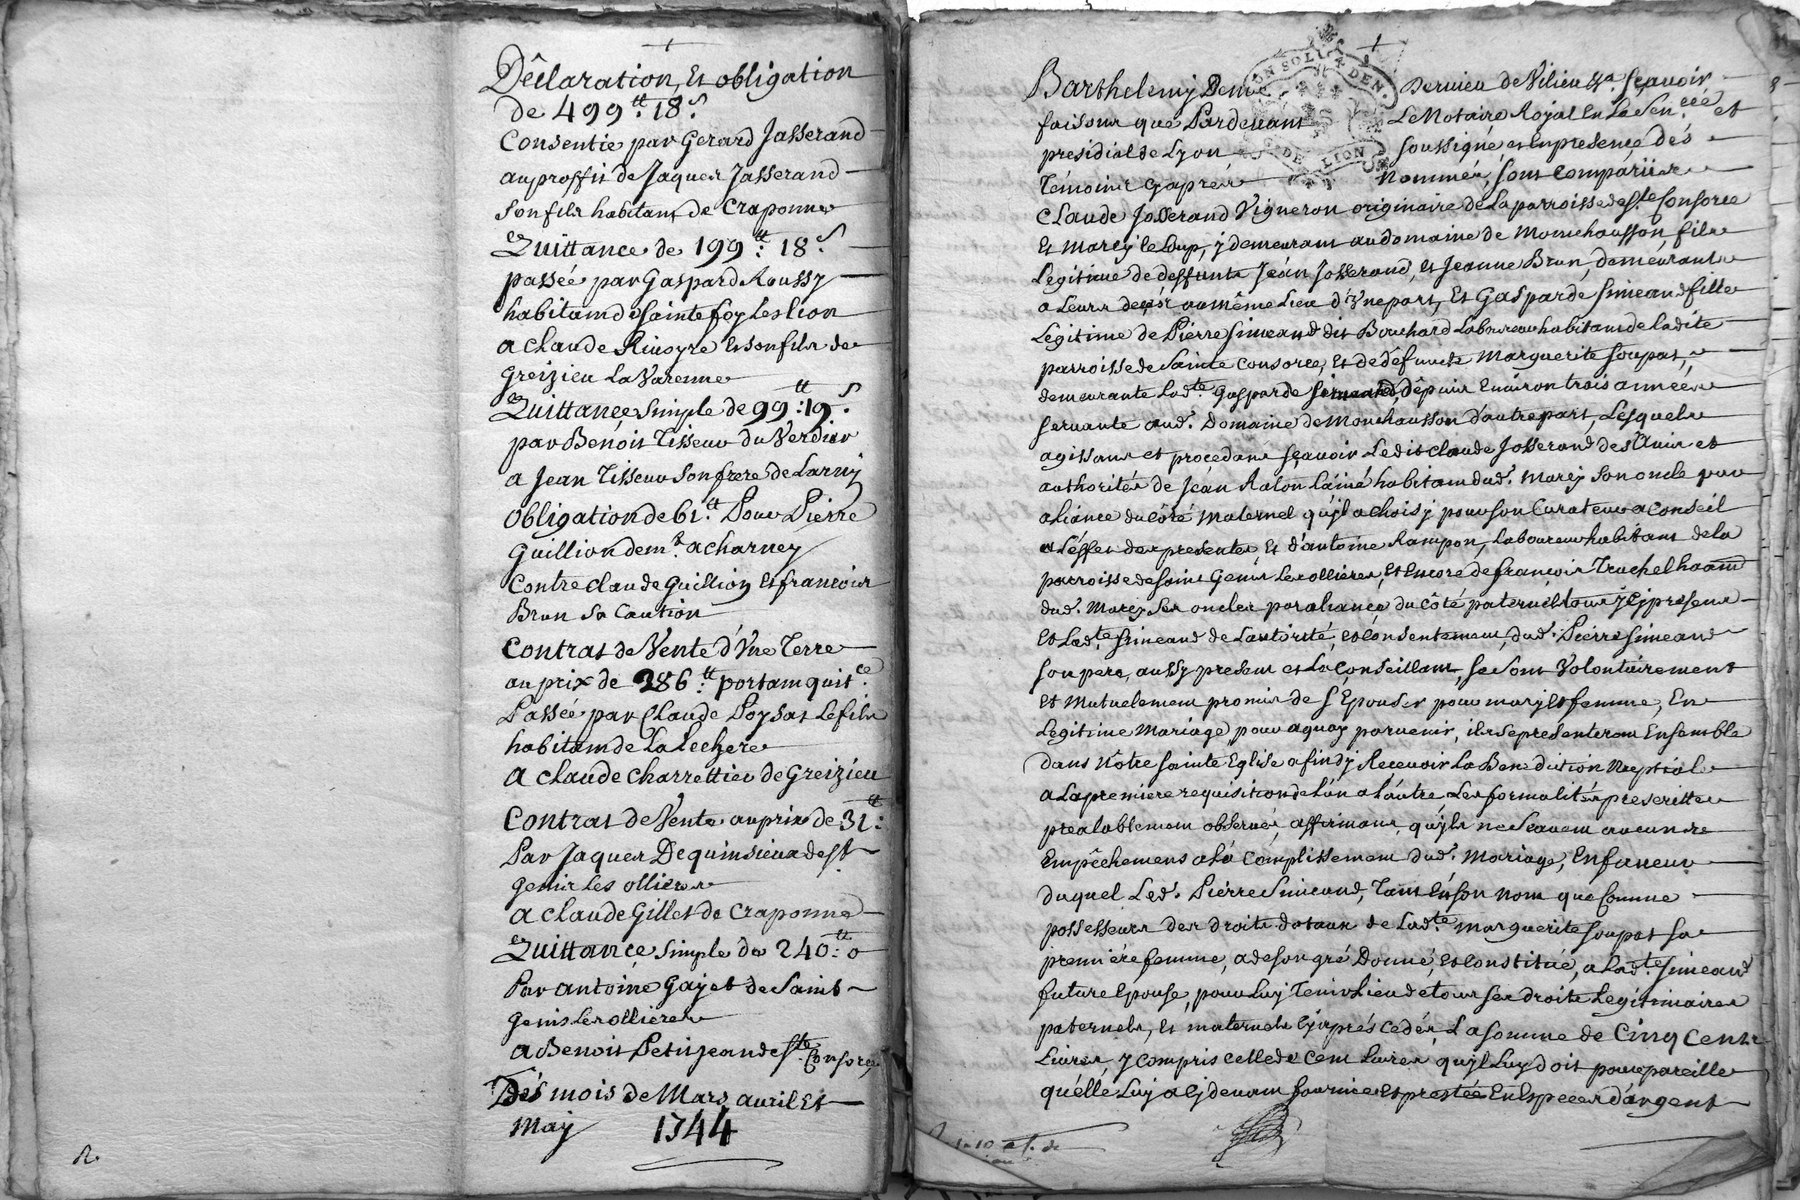 Déclaration, Et obligation
de 499.tt 18.s
Consentie par Gerard Jasserand
au proffit de Jaques Jasserand
Son fils habitant de Craponne
Quittance de 199.tt 18.s
passée par Gaspard Roussy
habitant de Sainte foy Les lion
a Claude Rivoyre Et son fils de
Greizieu La Varenne
Quittance Simple de 99.tt 19.s
par Benoit Tisseur du Verdier
a Jean Tisseur Son frere de Larny
Obligation de 61.tt Pour Pierre
Guillion dem.t a charney
Contre Claude Guillion Et francois
Brun Sa Caution
Contrat de Vente d'Une Terre
au prix de 386.tt portant quit.ce
Passée par Claude Poysat Le fils
habitant de La Lechere
a Claude Charrettier de Greizieu
Contrat de Vente au prix de 31.tt
Par Jaques Dequinsieux de St
Genis Les olliers
a Claude Gillet de Craponne
Quittance Simple de 240.tt 0
Par antoine Gayet de Saint
Genis Les ollieres
a Benoit Petitjean de Ste Consorce
Des mois de Mars avril Et
May 1744
Barthelemy Dervieu de Vilieu Sçavoir
faisons que Pardevant Le Notaire Royal En La Sen.ceé et
presidial de Lyon soussigné et En presence des
Témoins Cy après nommés, sont Comparües
Claude Josserand Vigneron originaire de La parroisse de Ste Consorce
Et Marcy le Loup, y demeurant au domaine de Monchausson, fils
Légitime de deffunts Jéan Josserand, Et Jeanne Brun, demeurants
a Leurs decés au même Lieu d'Une part, Et Gasparde Simeand fille
Légitime de Piérre Simeand dit Bouchard Laboureur habitant de Ladite
parroisse de Sainte Consorce, Et de défuncte Marguerite Soupat,
demeurante Lad.te Gasparde Simeand, dépuis Environ trois années
servante aud. Domaine de Monchausson d'autre part, Lesquels
agissans et procedans Sçavoir Ledit Claude Josserand des avis et
authorités de Jéan Ralon L'ainé habitant dud. Marcy Son oncle par
aliance du Côté Maternel qu'il a choisy pour son Curateur a Conseil
a L'éffet des presentes, Et d'antoine Rampon, Laboureur habitant de la
parroisse de Saint Genis Les ollieres, Et Encore de françois Truchet
dud. Marcy Ses oncles par aliance du Côté paternel tous icy presens
Et Lad.te Simeand de L'autorité, et Consentement dud. Piérre Simeand
son pere, aussy present et La Conseillant, se sont Volontairement
Et Mutuelement promis de S'Epouser pour mary Et femme, En
Legitime Mariage, pour a quoy parvenir, ils se présenteront Ensemble
dans Nôtre Sainte Eglise afin d'y Recevoir La Benediction Nuptiale
a La premiere requisition de L'un a L'autre Les formalités prescrittes
préalablement observées, affirmans qu'ils ne Scavent aucuns
Empêchemens a L'acomplissement dud. Mariage, En faveur
duquel Led. Piérre Simeand, Tant En son nom que Comme
possesseur des droits dotaux de Lad.te Marguerite Soupat sa
premiére femme, a de son gré Donné, et Constitué, a Lad.te Simeand
future Epouse, pour Luy Tenir Lieu de tous ses droits Légitimaires
paternels, Et maternels Cy après Cedés, La somme de Cinq Cents
Livres, y Compris celle de Cent Livres qu'il Luy doit pour pareille
qu'élle Luy a Cy devant fournie Et prestée En Espèces d'argent